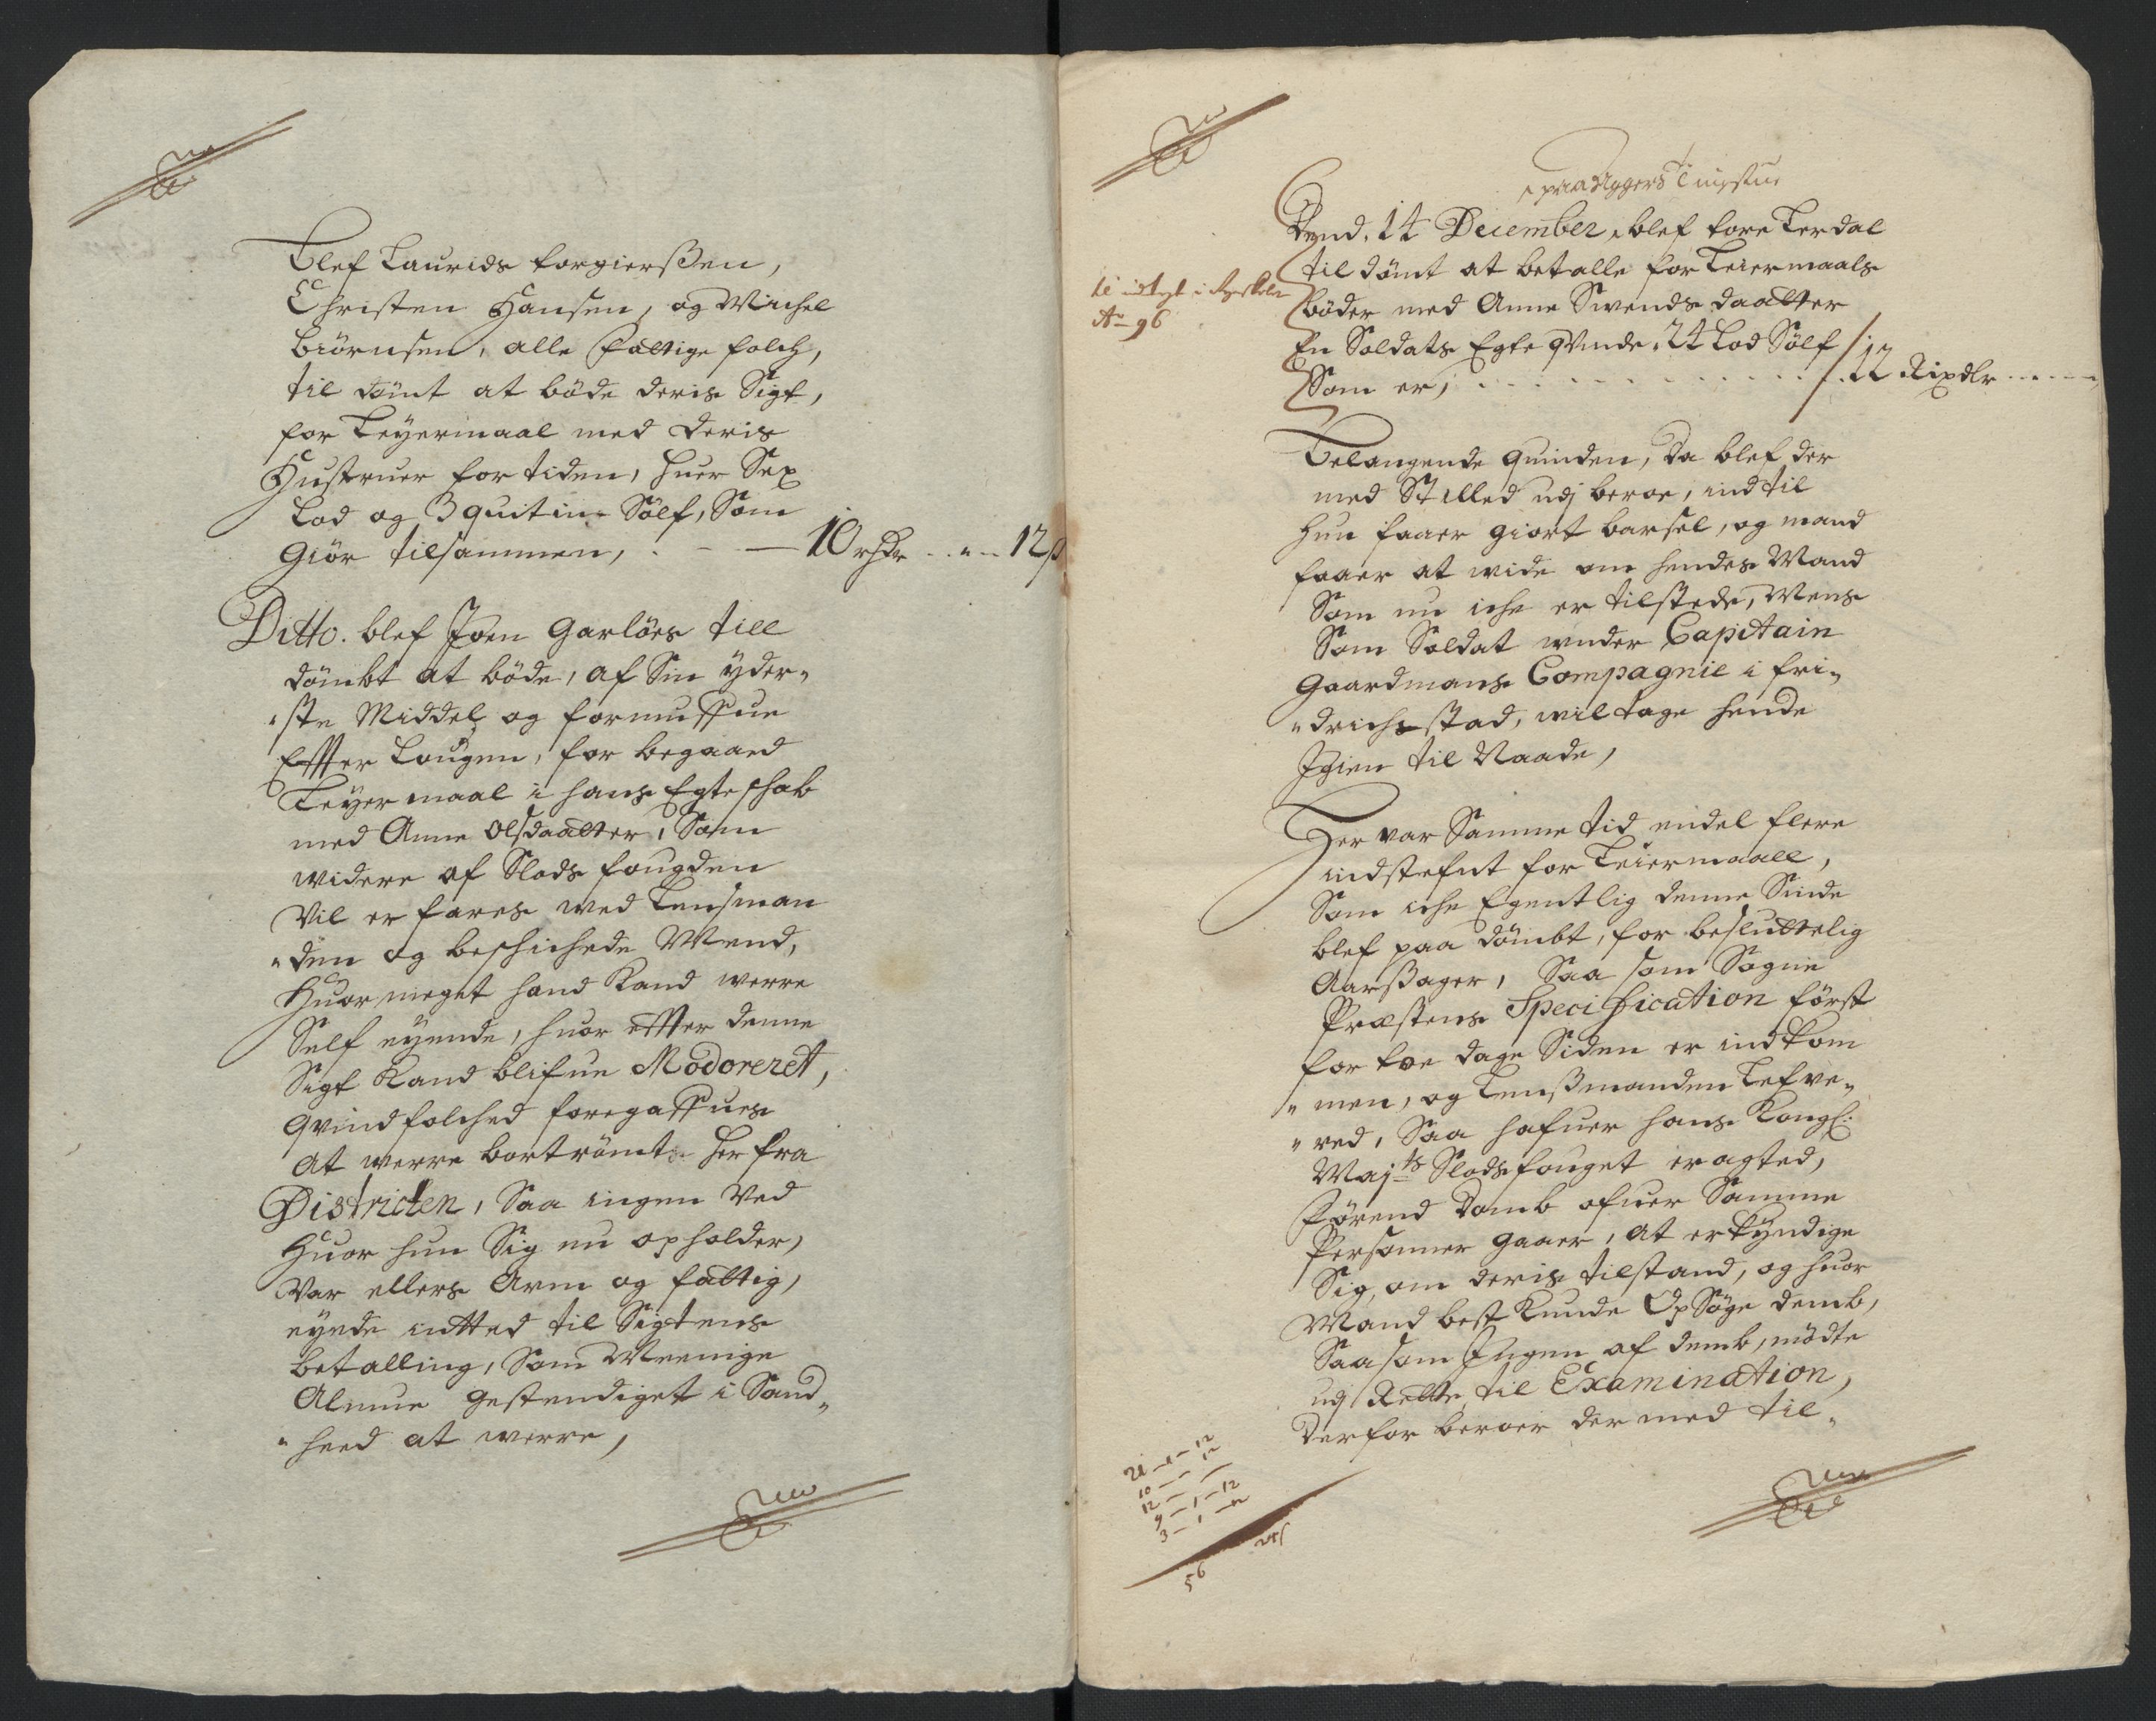 Blef Laurids Torgierßen,
Christen Hansen, og Michel
Biörnsen, alle fattige folch,
til dömt at böde deris Sigt,
for Leyermaal med deris
Hustruer for tiden, huer Sex
Lod og 3 quitin Sölf, Som
Giör tilsammen, . - - 10 rhdr - . - 12 ß
Ditto. blef Joen Garlöes till
dömbt at böde, af Sin yder„
„ste Middel og formuffue
Effter Lougen, for begaaed
Leyermaal i hans Egteschab
med Anne Olsdaatter, Som
widere af Slods fougden
Vil erfares med Lensman
„den og beschichede Mend,
Huor meget hand Kand werre
Self eyende, huor effter denne
Sigt Kand blifue Modoreret,
Qvindfolched foregaffues
at werre bortrömt her fra
Districten, Saa ingen Ved
Huor hun Sig nu opholder,
War ellers Arm og fattig,
eyede intted til Sigtens
betalling, Som Meenige
Almue gestendiget i Sand„
„heed at werre,
paa Aggers Tingstue
Dend. 14 December, blef Tore Terdal
til dömt at betalle for Leiermaals
böder med Anne Swends daatter
En Soldats Egte qvinde, 24 Lod Sölf
Som er, . . . . . 12 Rixdlr - - - -
Ao 96
Belangende quinden, da blef der
med Stilled udj beroe, ind til
hun faaer giort barsel, og mand
faaer at wide om hendes Mand
Som nu iche er tilstede, Mens
Som Soldat under Capitain
Gaardmans Compagnie i Fri„
„drichsstad, wil tage hende
Igien til Naade,
Der var Samme tid endel flere
indstefnt for Leiermaall,
Som iche Egentlig denne Sinde
blef paa dömbt, for besluttelig
Aarßager, Saa som Sogne
Præstens Specification först
for toe dage Siden er indkom
„men, og Lenßmanden Lefve„
„red, Saa hafuer hans Kongl:
Majts Slodsfouget eragted,
Förend Domb ofuer Samme
Personner gaaer, at erkyndige
Sig, om deris tilstand, og huor
Mand best Kunde OpSöge demb,
Saasom Ingen af demb, mödte
udj Rette til Examination,
Derfor beroer der med til„
21 - 1 - 12
10 - - 12
12 - -
9 - 1 - 12
3 - 1 -
56